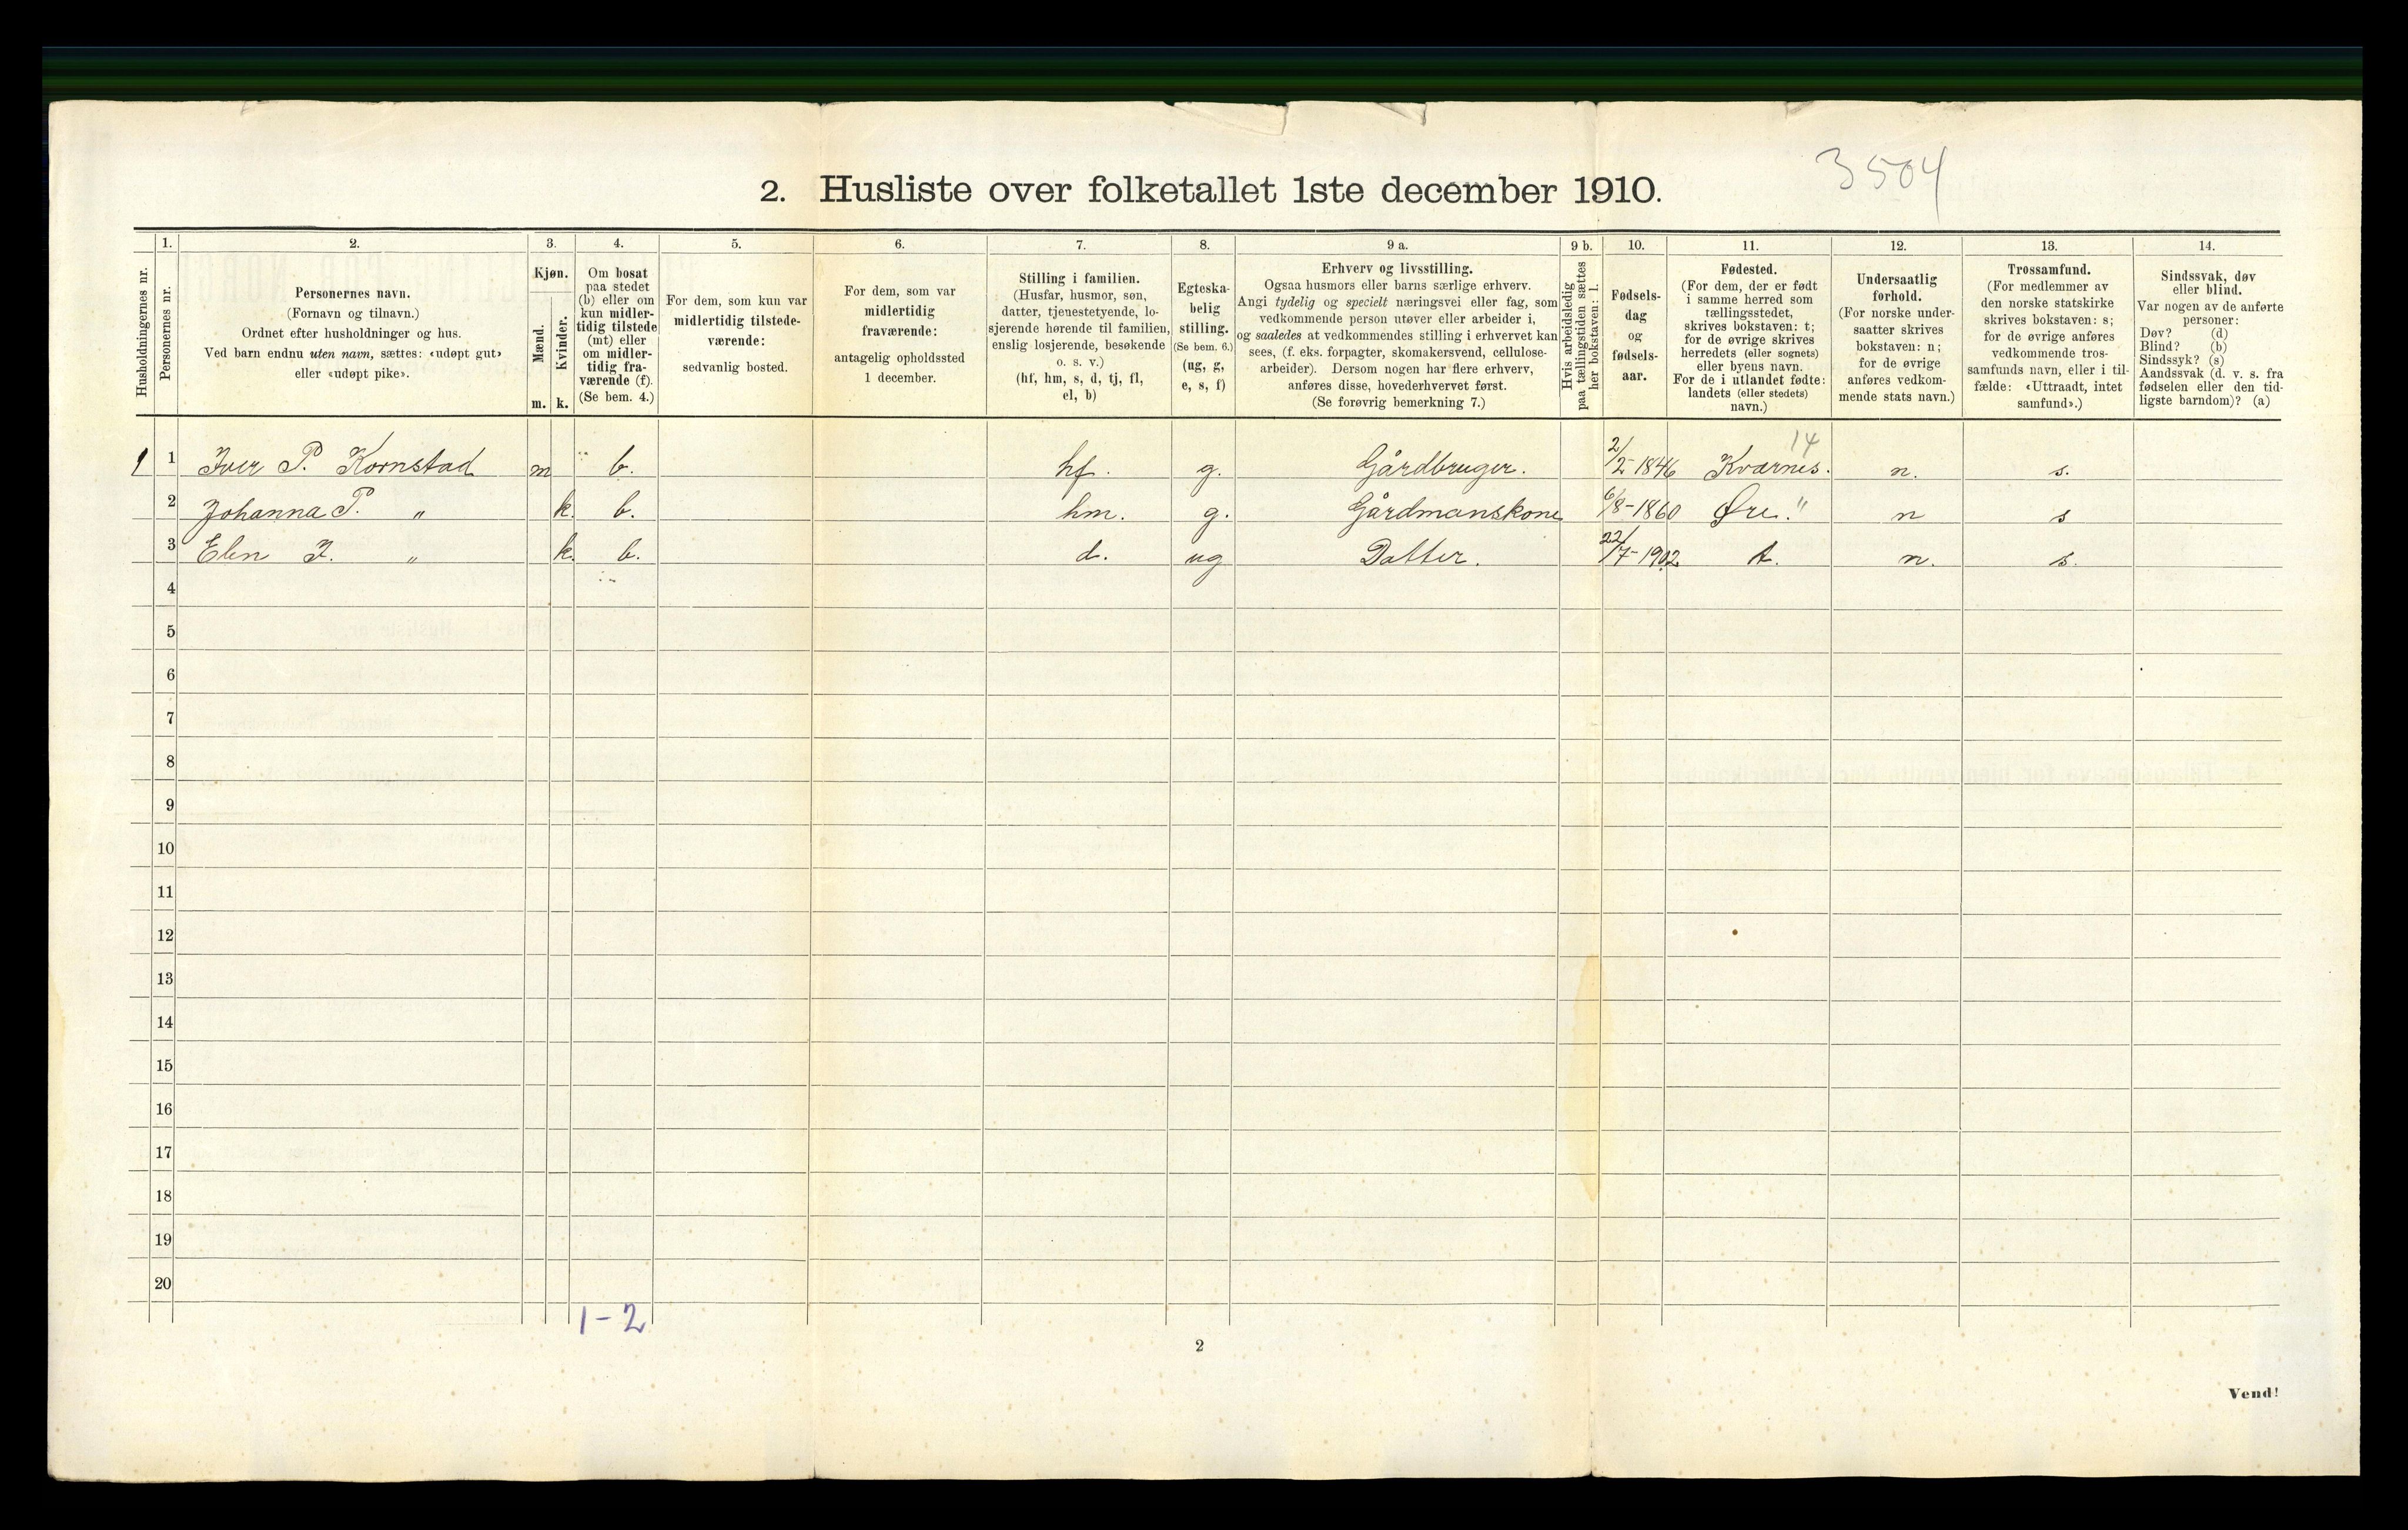 3504
2. Husliste over folketallet 1ste december 1910.
Husholdningernes nr.
1.
Personernes nr.
2.
Personernes navn.
(Fornavn og tilnavn.)
Ordnet efter husholdninger og hus.
Ved barn endnu uten navn, sættes: «udøpt gut»
eller «udøpt pike».
3.
Kjøn.
Mænd.
Kvinder.
m. k.
4.
Om bosat
paa stedet
(b) eller om
kun midler-
tidig tilstede
(mt) eller
om midler-
tidig fra-
værende (f).
(Se bem. 4.)
5.
For dem, som kun var
midlertidig tilstede-
værende:
sedvanlig bosted.
6.
For dem, som var
midlertidig
fraværende:
antagelig opholdssted
1 december.
7.
Stilling i familien.
(Husfar, husmor, søn,
datter, tjenestetyende, lo-
sjerende hørende til familien,
enslig losjerende, besøkende
o. s. v.)
(hf, hm, s, d, tj, fl,
el, b)
8.
Egteska-
belig
stilling.
(Se bem. 6.)
(ug, g,
e, s, f)
9 a.
Erhverv og livsstilling.
Ogsaa husmors eller barns særlige erhverv.
Angi tydelig og specielt næringsvei eller fag, som
vedkommende person utøver eller arbeider i,
og saaledes at vedkommendes stilling i erhvervet kan
sees, (f. eks. forpagter, skomakersvend, cellulose-
arbeider). Dersom nogen har flere erhverv,
anføres disse, hovederhvervet først.
(Se forøvrig bemerkning 7.)
9 b.
Hvis arbeidsledig
paa tællingstiden sættes
her bokstaven: l.
10.
Fødsels-
dag
og
fødsels-
aar.
11.
Fødested.
(For dem, der er født
i samme herred som
tællingsstedet,
skrives bokstaven: t;
for de øvrige skrives
herredets (eller sognets)
eller byens navn.
For de i utlandet fødte:
landets (eller stedets)
navn.)
12.
Undersaatlig
forhold.
(For norske under-
saatter skrives
bokstaven: n;
for de øvrige
anføres vedkom-
mende stats navn.)
13.
Trossamfund.
(For medlemmer av
den norske statskirke
skrives bokstaven: s;
for de øvrige anføres
vedkommende tros-
samfunds navn, eller i til-
fælde: «Uttraadt, intet
samfund».)
14.
Sindssvak, døv
eller blind.
Var nogen av de anførte
personer:
Døv? (d)
Blind? (b)
Sindssyk? (s)
Aandssvak (d. v. s. fra
fødselen eller den tid-
ligste barndom)? (a)
14
1 1 Iver P. Kornstad m b. hf. g. Gårdbruger. 2/2-1846 Kværnes. n. s.
2 Johanna P. " k. b. hm. g. Gårdmanskone 6/8-1860 Øre." n s
3 Elen I. " k. b. d. ug Datter. 22/7-1902 t. n. s.
4
5
6
7
8
9
10
11
12
13
14
15
16
17
18
19
20
1-2
2
Vend!